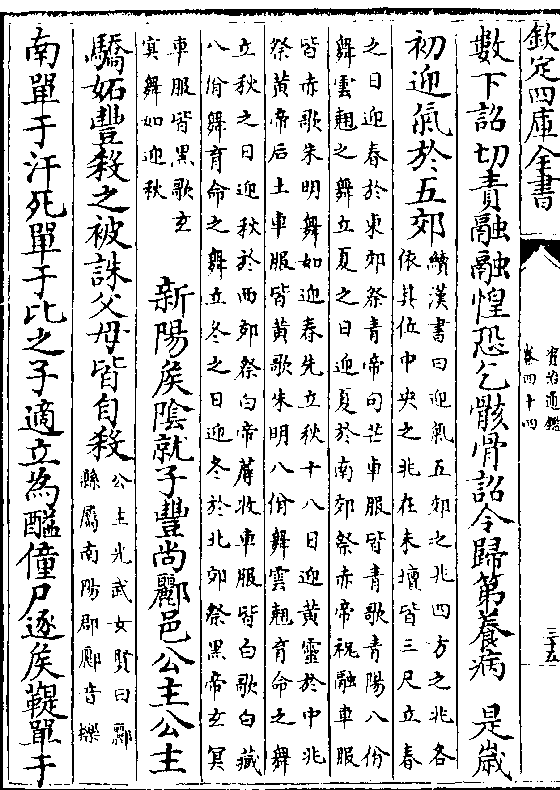 欽定四庫全書
資治通鑑
卷四十四
三十五
數下詔切責融融惶恐乞骸骨詔令歸第養病 是歲
初迎氣於五郊
續漢書曰迎氣五郊之兆四方之兆各
依其位中央之兆在未壇皆三尺立春
之日迎春於東郊祭青帝句芒車服皆青歌青陽八佾
舞雲翹之舞立夏之日迎夏於南郊祭赤帝祝融車服
皆赤歌朱明舞如迎春先立秋十八日迎黃靈於中兆
祭黃帝后土車服皆黃歌朱明八佾舞雲翹育命之舞
立秋之日迎秋於西郊祭白帝蓐收車服皆白歌白藏
八佾舞育命之舞立冬之日迎冬於北郊祭黑帝玄冥
車服皆黑歌玄
冥舞如迎秋
新陽矦陰就子豐尚酈邑公主公主
驕妬豐殺之被誅父母皆自殺
公主光武女賢曰酈
縣屬南陽郡酈音櫟
南單于汗死單于比之子適立為䤈僮尸逐矦鞮單于